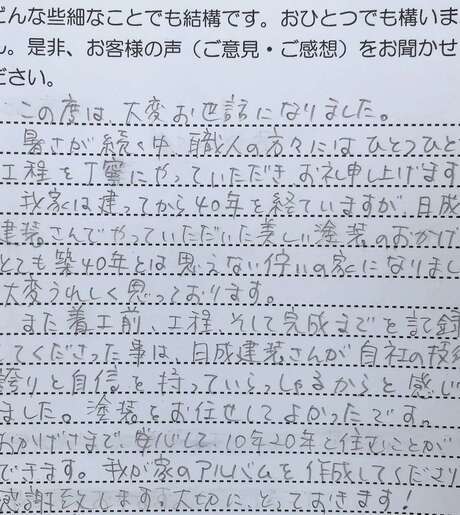 どんな些細なことでも結構です。おひとつでも構いま
ん。是非、お客様の声（ご意見・ご感想）をお聞かせ
ださい。
この度は、大変お世話になりました。
暑さが続く中、職人の方々にはひとつひと
工程を丁寧にやっていただき、お礼申し上げます
我家は建ってから40年を経ていますが、日成
建装さんでやっていただいた美しい塗装のおかげ
とても築40年とは思えない佇いの家になりまし
大変うれしく思っております。
また着工前、工程、そして完成までを記録
してくださった事は、日成建装さんが自社の技術
誇りと自信を持っていらっしゃるからと感じ
ました。塗装をお任せしてよかったです。
おかげさまで、安心して、10年20年と住むことが
できます。我が家のアルバムを作成してくださり
感謝致します。大切に、とっておきます！